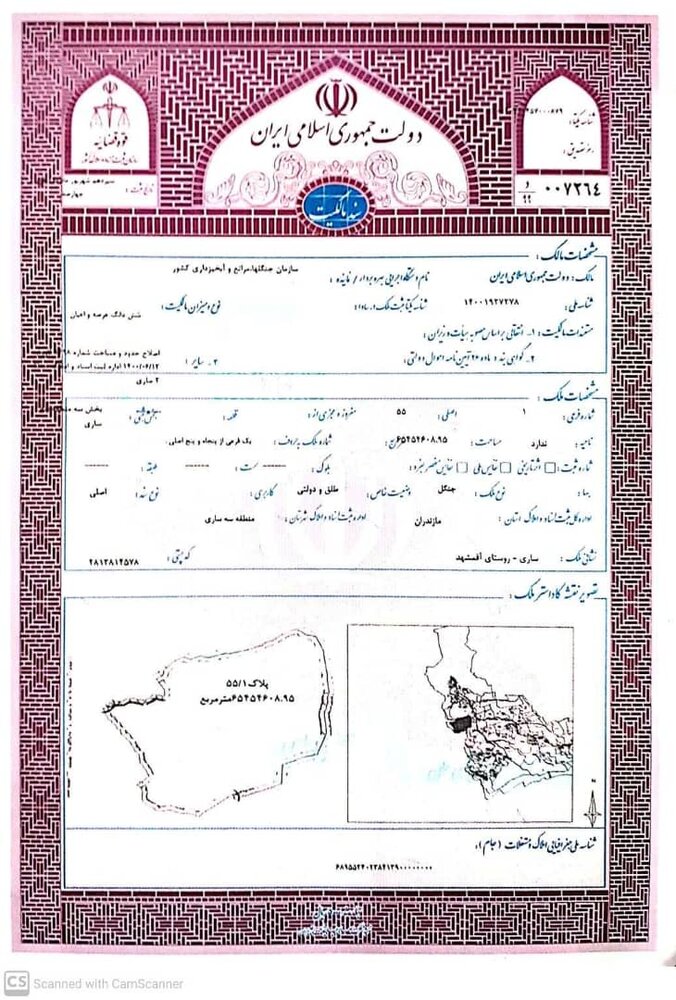 دولت جمهوری اسلامی ایران
قوه قضاییه
شناسه یکتا:
رمز تصدیق:
تاریخ ثبت:
۰۰۷۲۶۴
و
۹۹
سند مالکیت
مشخصات مالک:
مالک: دولت جمهوری اسلامی ایران
نام دستگاه اجرایی بهره بردار / نماینده:
سازمان جنگلها، مراتع و آبخیزداری کشور
شناسه ملی: ۱۴۰۰۱۹۲۷۲۷۸
نوع و میزان مالکیت: شش دانگ عرصه و اعیان
مستندات مالکیت: ۱- انتقالی بر اساس مصوبه هیات وزیران:
۲- گواهی بند و ماده ۲۰ آیین نامه اموال دولتی:
۳- سایر:
اصلاح حدود و مساحت شماره
۱۴۰۰/۰۶/۱۲ اداره ثبت اسناد و
۲ ساری
مشخصات ملک:
شماره فرعی: ۱
اصلی: ۵۵
مفروز و مجزی از:
قطعه:
بخش ثبتی:
بخش سه
ساری
ناحیه: ندارد
مساحت: ۶۵۴۵۴۶۰۸.۹۵
شماره ملک به حروف: یک فرعی از پنجاه و پنج اصلی.
شماره ثبت: اثر تاریخی نفایس ملی نفایس منحصر بفرد
بلوک: ------
سمت: ------
طبقه: ------
بها:
نوع ملک: جنگل
وضعیت خاص: طلق و دولتی
کاربری:
نوع سند: اصلی
اداره کل ثبت اسناد و املاک استان: مازندران
اداره ثبت اسناد و املاک شهرستان: منطقه سه ساری
نشانی ملک: ساری - روستای آفمشهد
کد پستی: ۴۸۱۳۸۱۴۵۷۸
تصویر نقشه کاداستر ملک:
پلاک ۵۵/۱
۶۵۴۵۴۶۰۸.۹۵مترمربع
شناسه ملی جغرافیایی املاک و مستغلات (جام):
۶۸۹۵۵۲۴۰۲۳۸۴۱۳۹۰۰۰۰۰۰۰۰
CS Scanned with CamScanner